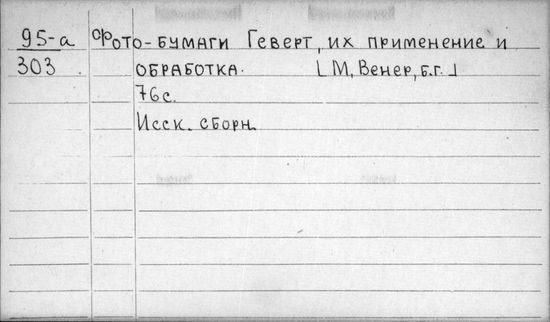 95-а Фото-бумаги Геверт, их применение и
303 обработка. [М, Венер, б.г.]
76 с.
Исск. сборн.